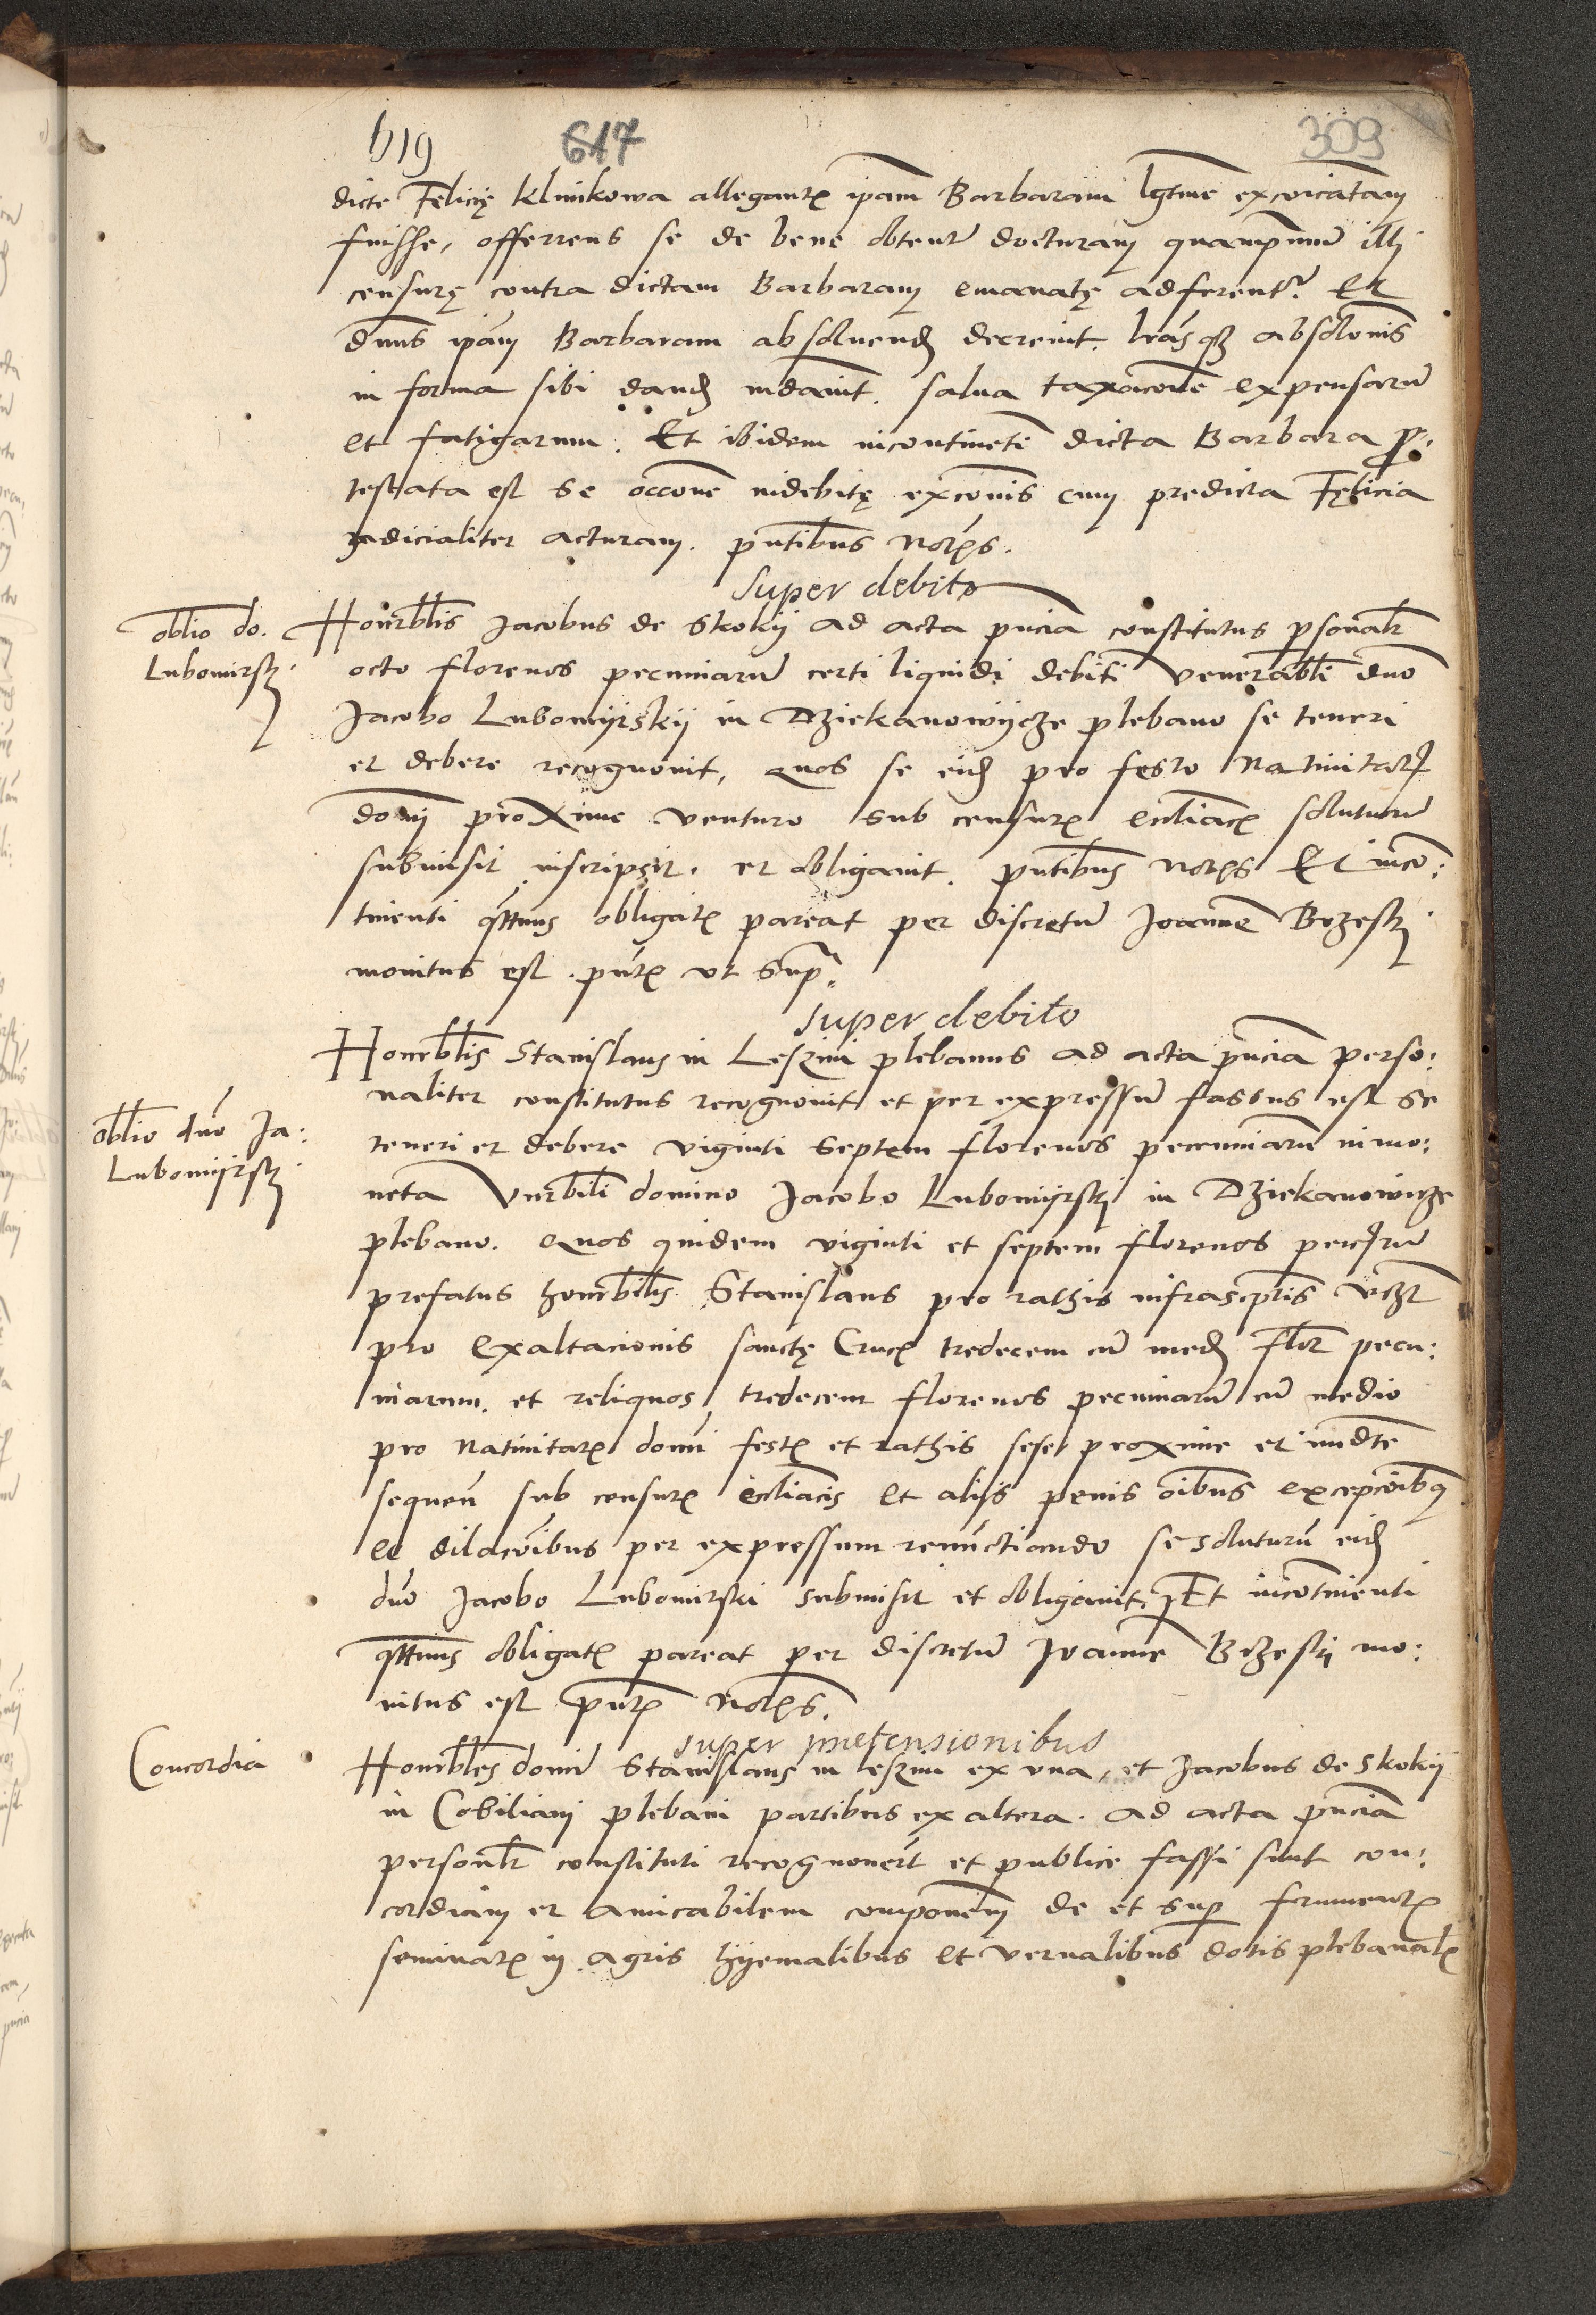 619 617 309
dicte Felicię Klimkowa allegantꝭ ipam Barbaram lgtme excoicatam
fuisse, offerrens se de bene obtentu docturam quampmum illi
censurę contra dictam Barbaram emanatę adferentr. Et
dnus ipam Barbaram absoluend decreuit. lrasqʒ absolonis
in forma sibi dand mdauit. salua taxacone expensarum
et fatigarum. Et ibidem incontineti dicta Barbara pro
testata est se occone indebitę exconis cum predicta Felicia
iudicialiter acturam. pntibus notꝭs.
super debito
oblio do.
Lubomirsky
Honrblis Jacobus de Skokij ad acta pncia constitutus psonalr
octo florenos pecuniarum certi liquidi debiti venerabli dno
Jacobo Lubomijrskij in Dziekanowijcze plebano se teneri
et debere recognouit, quos se eid pro festo Natiuitatꝭ
domij proxime venturo sub censurꝭ eccliacꝭ soluturum
submisit inscripsit. et obligauit. pntibus notꝭs Et inco:
tinenti qttnus obligatꝭ pareat per discretum Joannem Brzesky
monitus est. pntꝭ vt supra.
super debito
Honrblis Stanislaus in Leszini plebanus ad acta pncia perso:
naliter constitutus recognouit et per expressum fassus est se
oblio dno Ja:
Lubomijrsky
teneri et debere viginti septem florenos pecuniarum in mo:
neta Vnrbili domino Jacobo Lubomijrskj in Dziekanowicze
plebano. Quos quidem viginti et septem florenos pecꝭrum
prefatus honrbilis Stanislaus pro rathis infrascptis vidzt
pro Exaltacionis sanctę Crucꝭ tredecem cum med flor pecu:
niarum. et reliquos tredecem florenos pecuniarum cum medio
pro Natiuitatꝭ domini festꝭ et rathis sese proxime et immdte
sequen sub censurꝭ eccliacis et alijs penis oibus excepcoibus
et dilacoibus per expressum renunctiando se soluturum eid
dno Jacobo Lubomirski submisit et obligauit. Et incontinenti
qttnus obligatꝭ pareat per discretum Joannem Brzeskj mo:
nitus est pntꝭ notꝭs.
super pretensionibus
Concordia
Honrbles domini Stanislaus in leszini ex vna, et Jacobus de Skokij
in Cobiliani plebani partibus ex altera. ad acta pncia
personalr constituti recognouert et publice fassi sunt con:
cordiam et amicabilem componem de et sup frumentꝭ
seminatꝭ in agris hyemalibus et vernalibus dotis plebanalꝭ